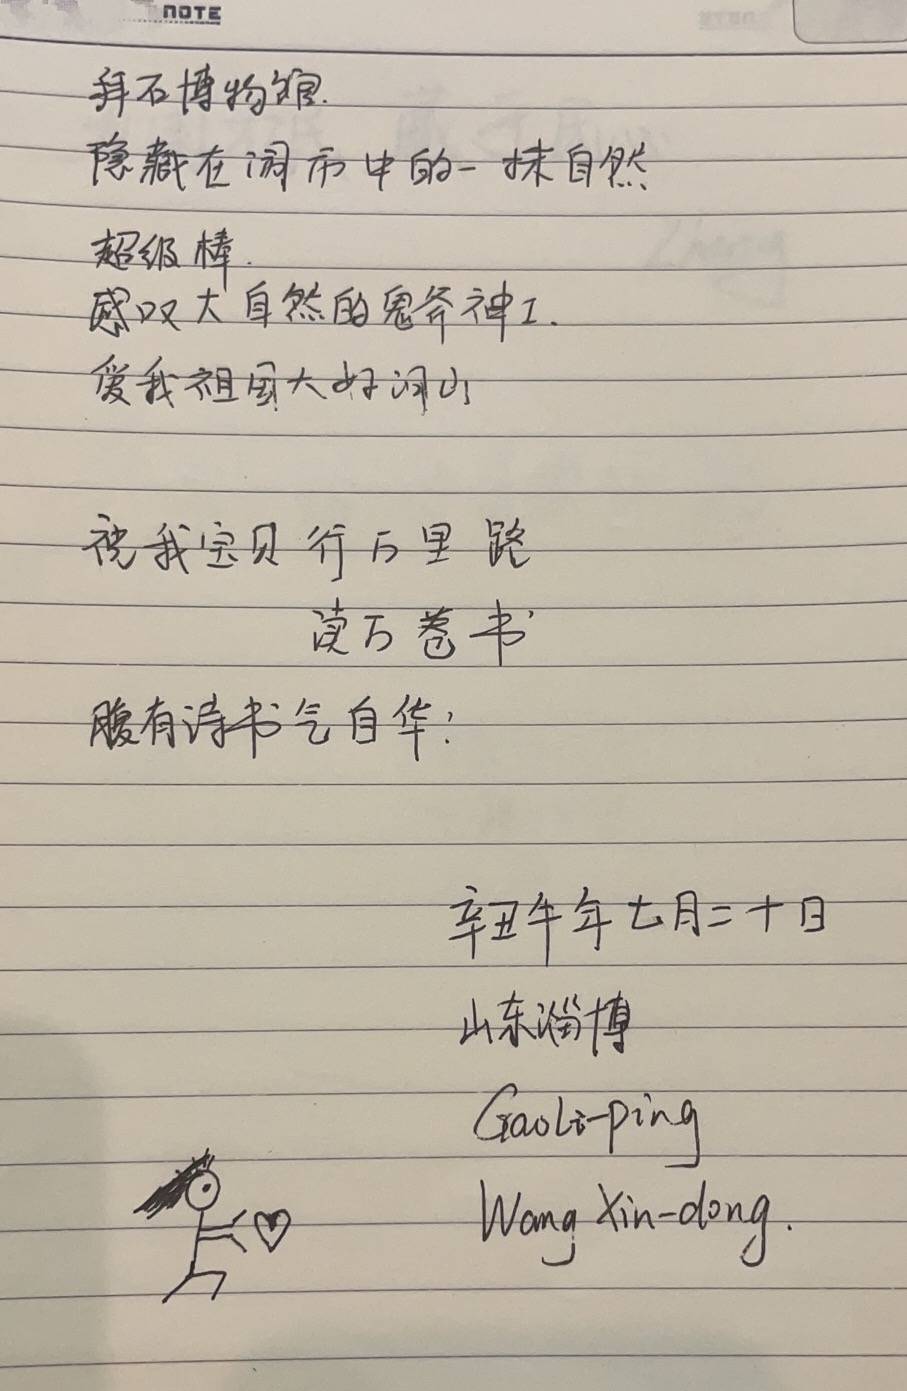 NOTE
拜石博物馆.
隐藏在闹市中的一抹自然
超级棒.
感叹大自然的鬼斧神工.
爱我祖国大好河山
祝我宝贝行万里路
读万卷书
腹有诗书气自华!
辛丑牛年七月二十日
山东淄博
Gaoli-ping
Wang Xin-dong.